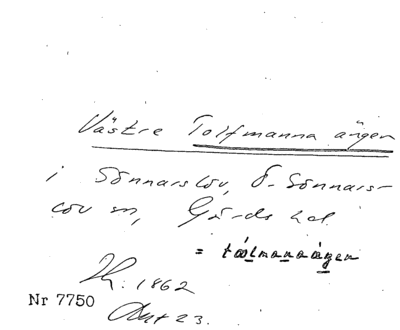 Västre Tolfmanna ängen
i Sönnarslöv, Ö. Sönnars-
löv sn, Gärds hd.
= tålmanaängen
Th. 1862
Akt 23.
Nr 7750